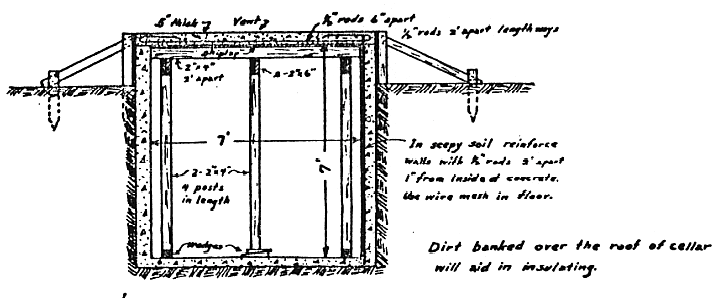 5" thick Vent ½" rods 6" apart
½" rods 2' apart lengthways
Shiplap
2"x4"
2' apart
2-2"x6"
7'
7'
2-2"x4"
4 posts
in length
wedges
In seepy soil reinforce
walls with ½" rods 2' apart
1" from inside of concrete.
Use wire mesh in floor.
Dirt banked over the roof of cellar
will aid in insulating.